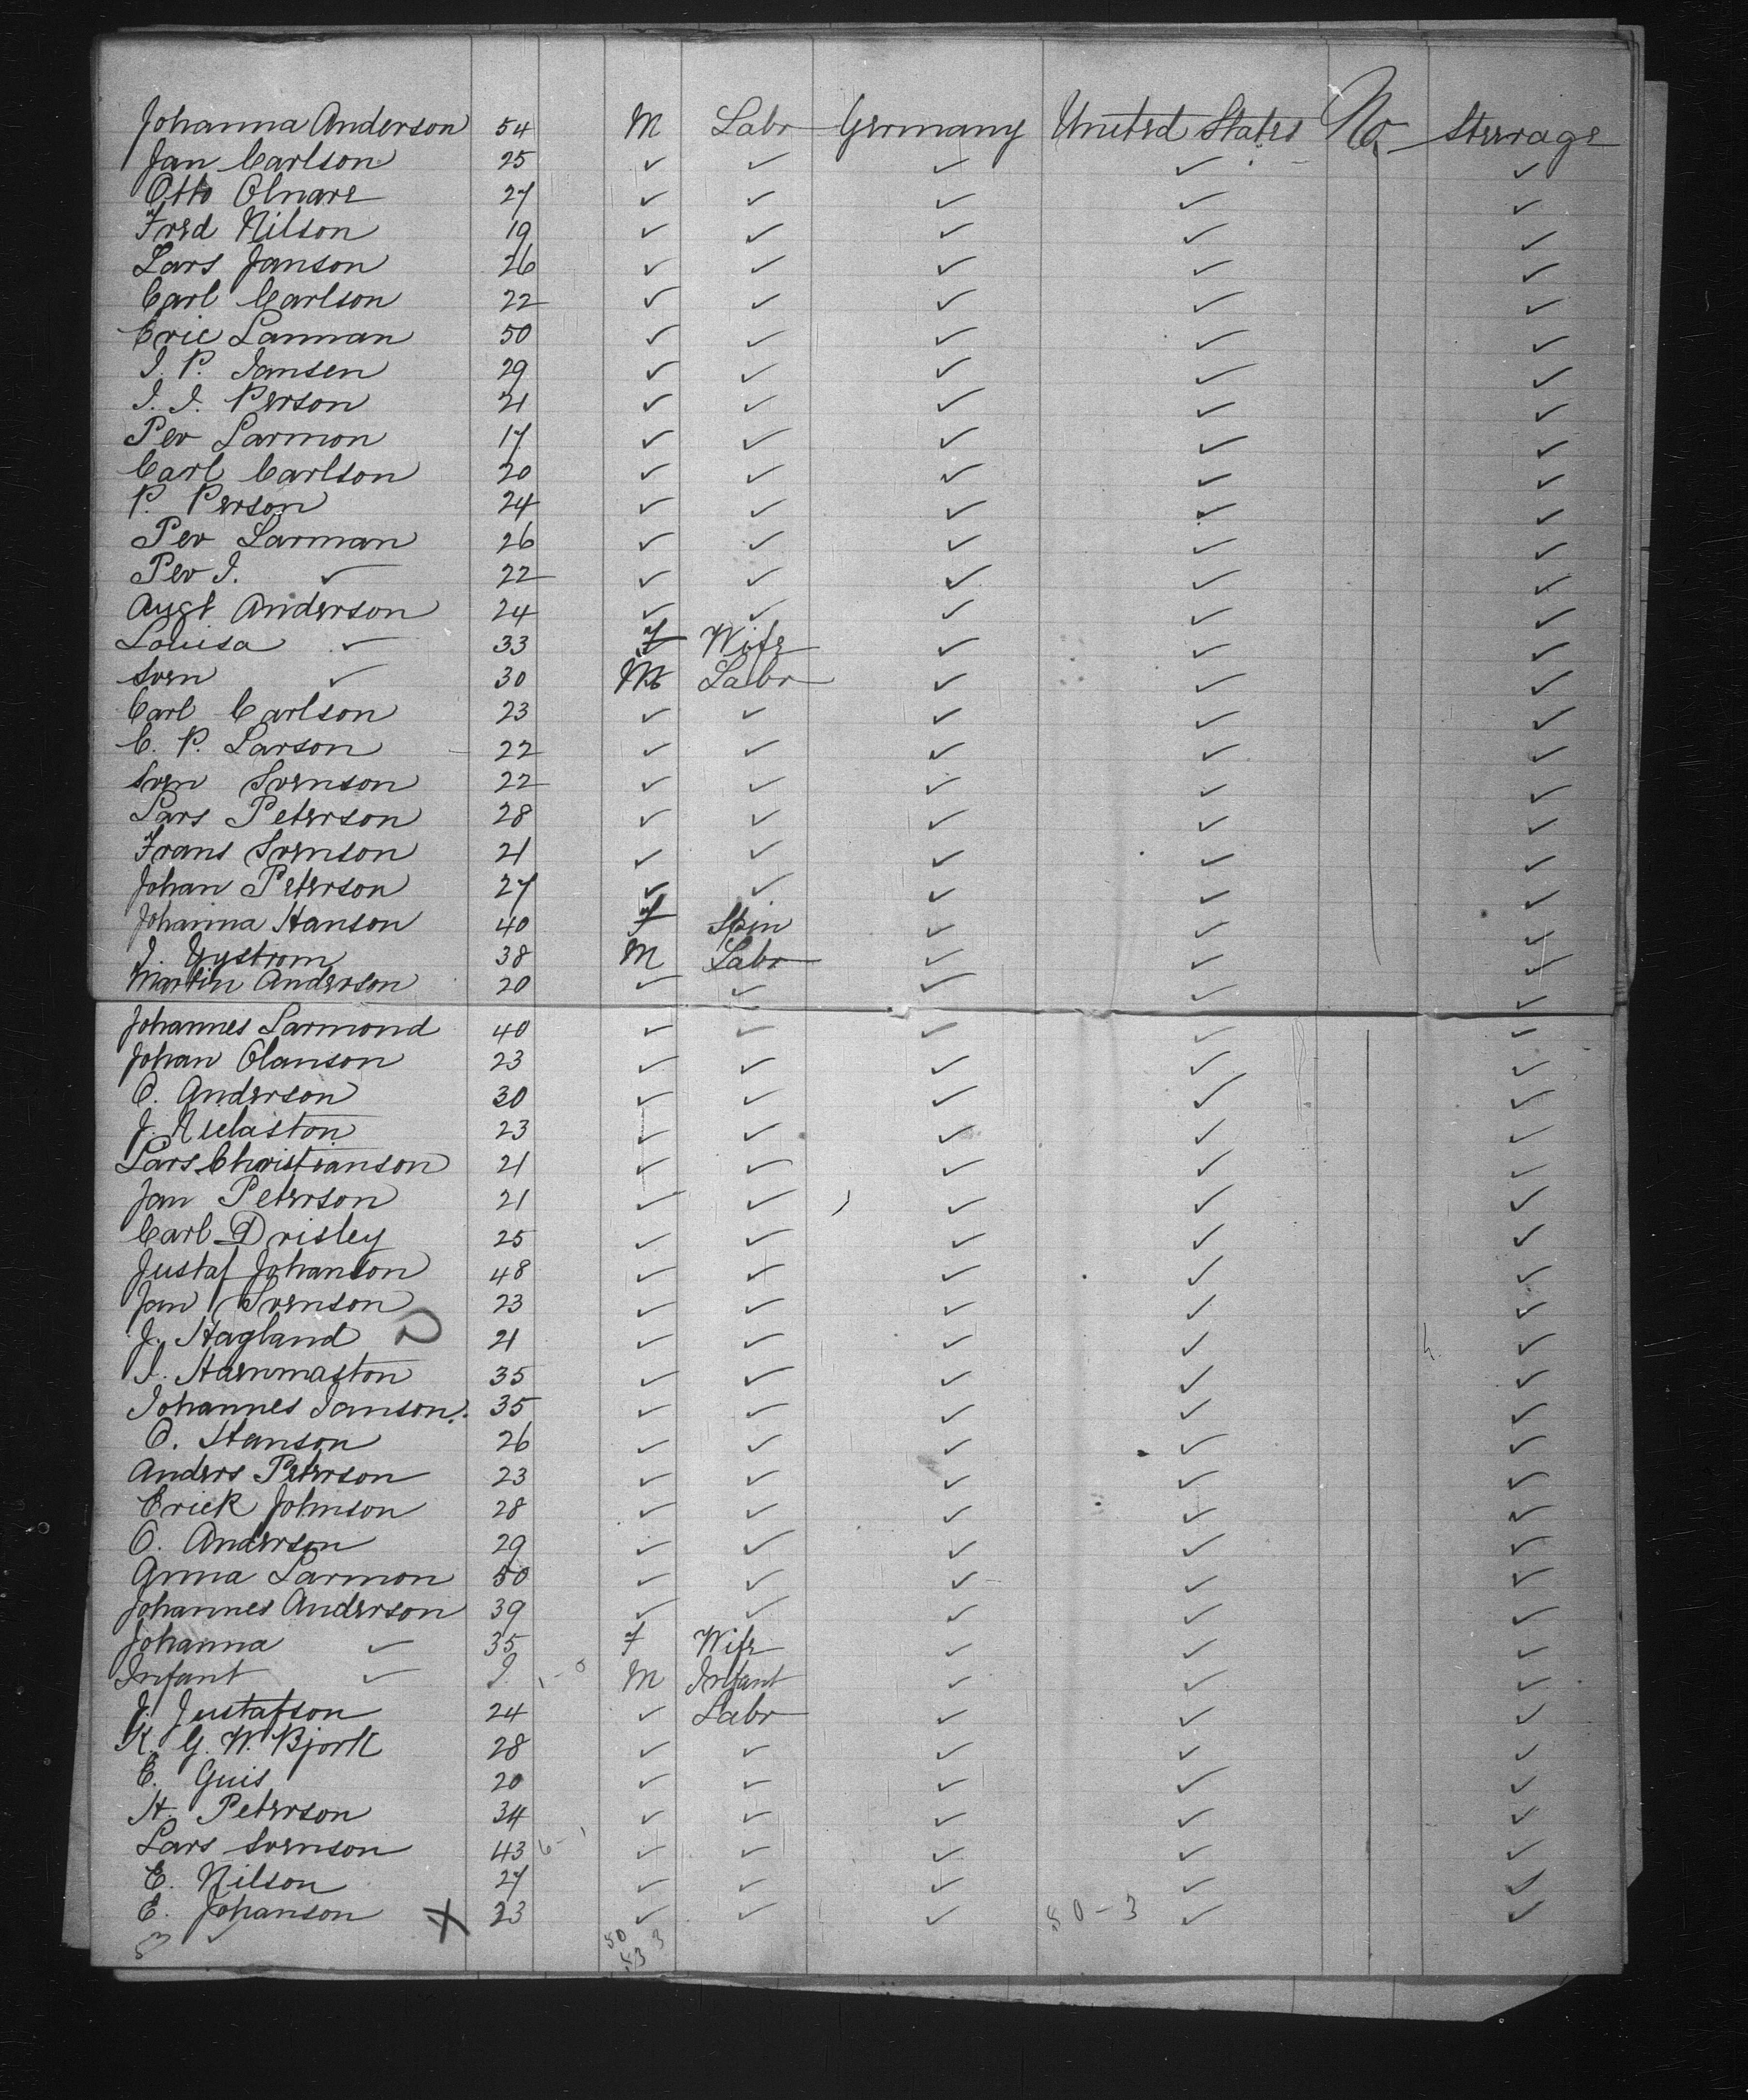 Johanna Anderson 54 M Labr Germany United States No Steerage
Jan Carlson 25 ✓ ✓ ✓ ✓ ✓
Otto Olnare 27 ✓ ✓ ✓ ✓ ✓
Fred Nilson 19 ✓ ✓ ✓ ✓ ✓
Lars Janson 26 ✓ ✓ ✓ ✓ ✓
Carl Carlson 22 ✓ ✓ ✓ ✓ ✓
Eric Lanman 50 ✓ ✓ ✓ ✓ ✓
J. P. Jansen 29 ✓ ✓ ✓ ✓ ✓
J. J. Person 21 ✓ ✓ ✓ ✓ ✓
Per Larmon 17 ✓ ✓ ✓ ✓ ✓
Carl Carlson 20 ✓ ✓ ✓ ✓ ✓
P. Person 24 ✓ ✓ ✓ ✓ ✓
Per Larman 26 ✓ ✓ ✓ ✓ ✓
Per J. ✓ 22 ✓ ✓ ✓ ✓ ✓
Augt Anderson 24 ✓ ✓ ✓ ✓ ✓
Louisa ✓ 33 F Wife ✓ ✓ ✓
Sven ✓ 30 M Labr ✓ ✓ ✓
Carl Carlson 23 ✓ ✓ ✓ ✓ ✓
C. P. Larson 22 ✓ ✓ ✓ ✓ ✓
Sven Svenson 22 ✓ ✓ ✓ ✓ ✓
Lars Peterson 28 ✓ ✓ ✓ ✓ ✓
Frans Svenson 21 ✓ ✓ ✓ ✓ ✓
Johan Peterson 27 ✓ ✓ ✓ ✓ ✓
Johanna Hanson 40 F Spin ✓ ✓ ✓
J. 38 M Labr ✓ ✓ ✓
Martin Anderson 20 ✓ ✓ ✓ ✓ ✓
Johannes Larmond 40 ✓ ✓ ✓ ✓ ✓
Johan Olanson 23 ✓ ✓ ✓ ✓ ✓
O. Anderson 30 ✓ ✓ ✓ ✓ ✓
J. 23 ✓ ✓ ✓ ✓ ✓
Lars Christianson 21 ✓ ✓ ✓ ✓ ✓
Jan Peterson 21 ✓ ✓ ✓ ✓ ✓
Carl Drisley 25 ✓ ✓ ✓ ✓ ✓
Justaf Johanson 48 ✓ ✓ ✓ ✓ ✓
Jan Svenson 23 ✓ ✓ ✓ ✓ ✓
J. Hagland 21 ✓ ✓ ✓ ✓ ✓
J. 35 ✓ ✓ ✓ ✓ ✓
Johannes Janson. 35 ✓ ✓ ✓ ✓ ✓
O. Hanson 26 ✓ ✓ ✓ ✓ ✓
Anders Peterson 23 ✓ ✓ ✓ ✓ ✓
Erick Johnson 28 ✓ ✓ ✓ ✓ ✓
O. Anderson 29 ✓ ✓ ✓ ✓ ✓
Anna Larmon 50 ✓ ✓ ✓ ✓ ✓
Johannes Anderson 39 ✓ ✓ ✓ ✓ ✓
Johanna ✓ 35 F Wife ✓ ✓ ✓
Infant ✓ M Infant ✓ ✓ ✓
J. Justafson 24 ✓ Labr ✓ ✓ ✓
K. G. W. Bjork 28 ✓ ✓ ✓ ✓ ✓
E. Guis 20 ✓ ✓ ✓ ✓ ✓
H. Peterson 34 ✓ ✓ ✓ ✓ ✓
Lars Svenson 43 ✓ ✓ ✓ ✓ ✓
E. Nilson 27 ✓ ✓ ✓ ✓ ✓
E. Johanson X 23 ✓ ✓ ✓ 50-3 ✓ ✓
53 50 3
53